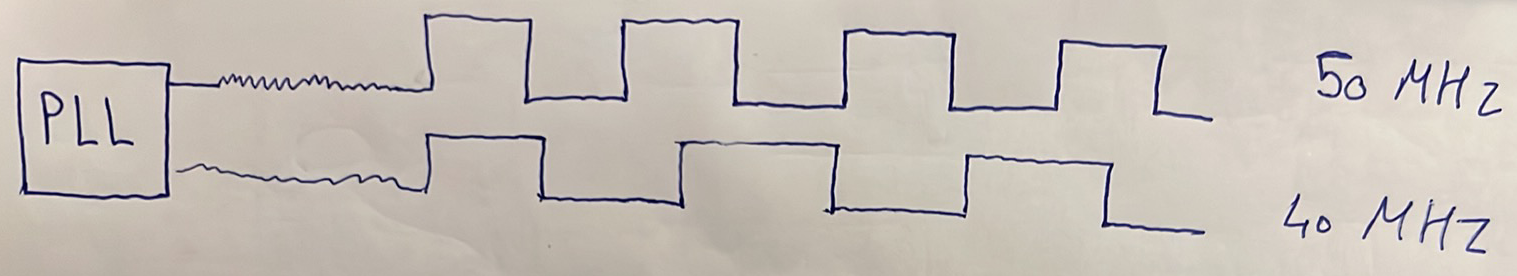 PLL
50 MHz
40 MHz